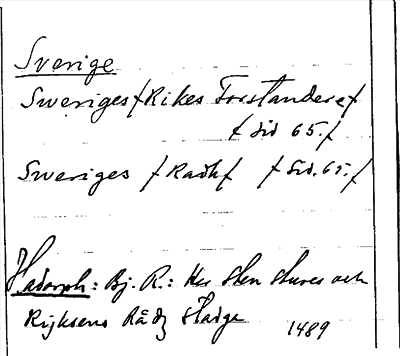 Sverige
Sweriges / Rikes Forstandere /
/ Sid 65. /
Sweriges / Radh / / Sid. 65. /
Hadorph: Bj. R.: Her Sten Stures och
Rijksens Rådz Stadge 1489